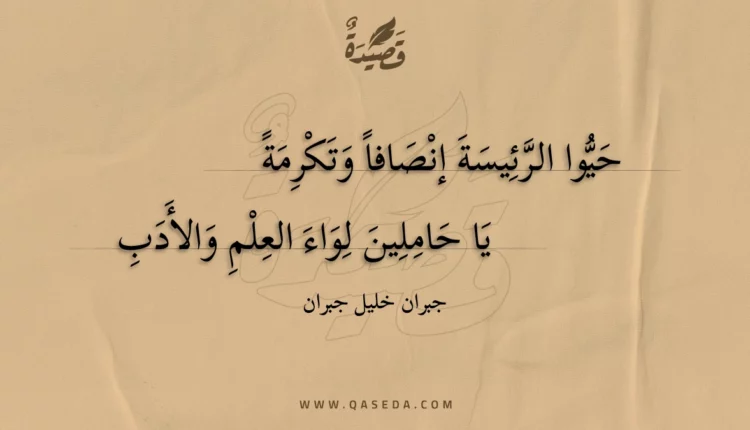 قَصِيدَةٌ
حَيُّوا الرَّئِيسَةَ إِنْصَافاً وَتَكْرِمَةً
يَا حَامِلِينَ لِوَاءَ العِلْمِ وَالأَدَبِ
جبران خليل جبران
WWW.QASEDA.COM